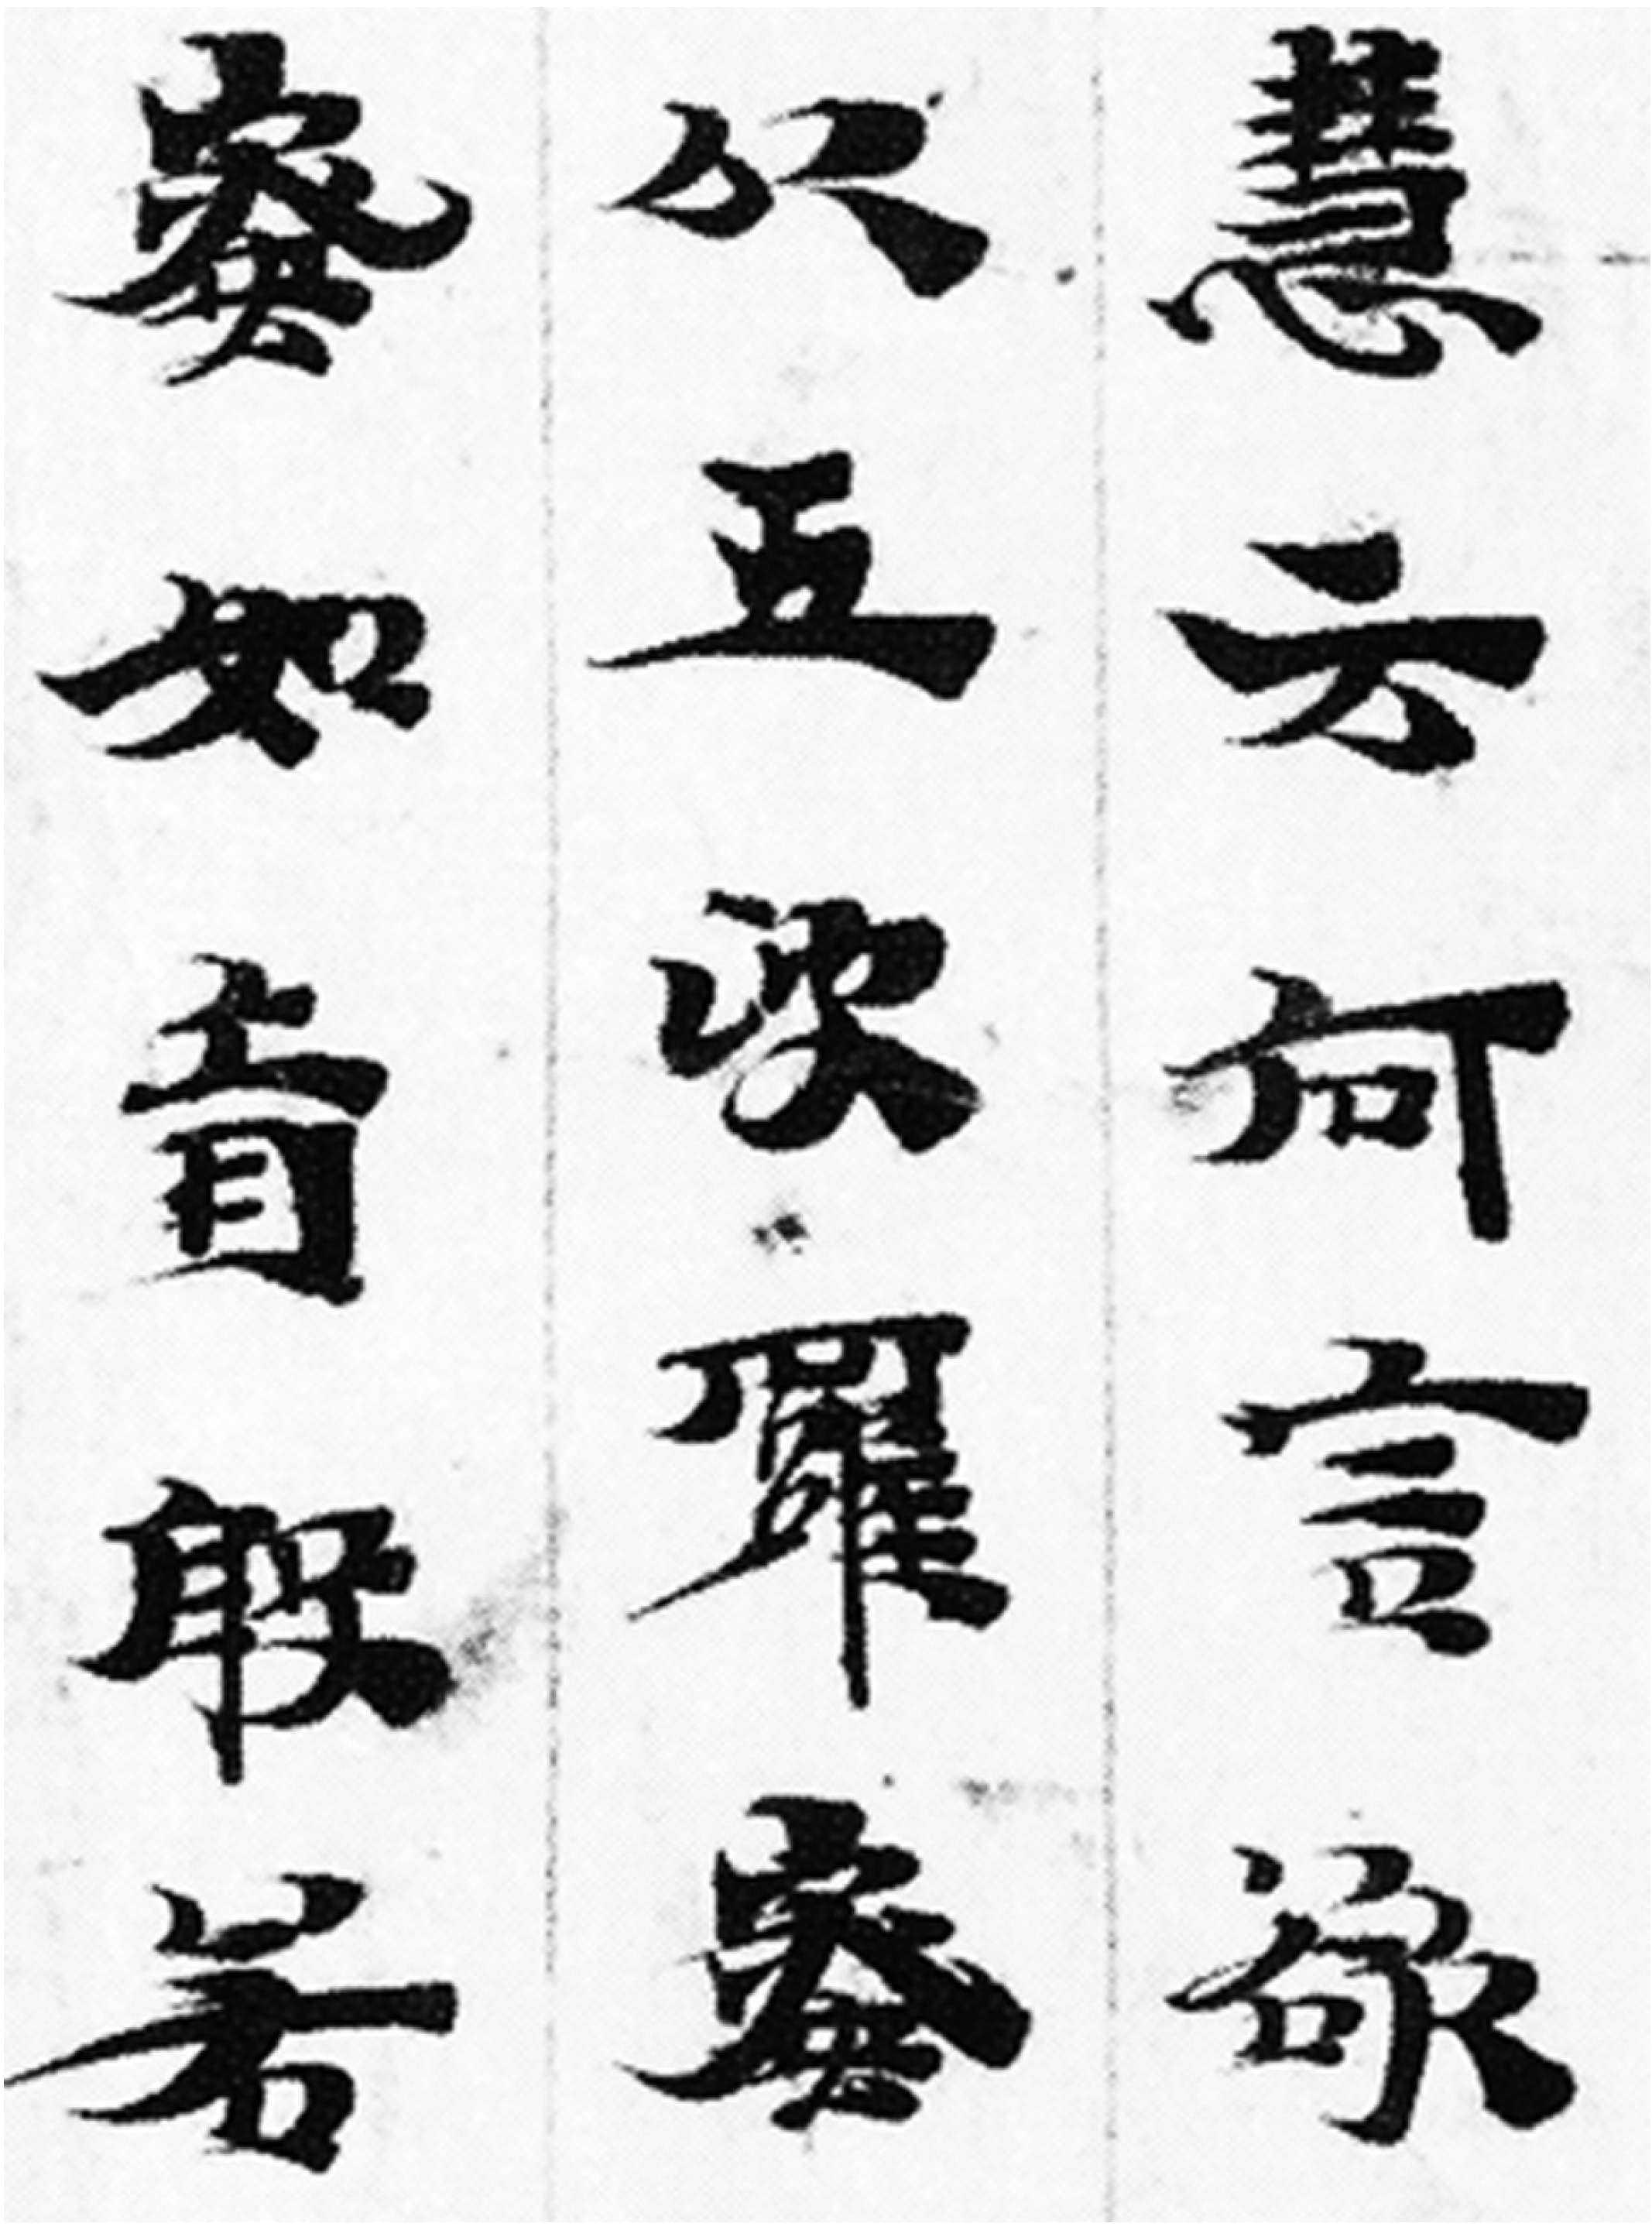 慧云何言欲
以五波羅蜜
蜜如盲般若